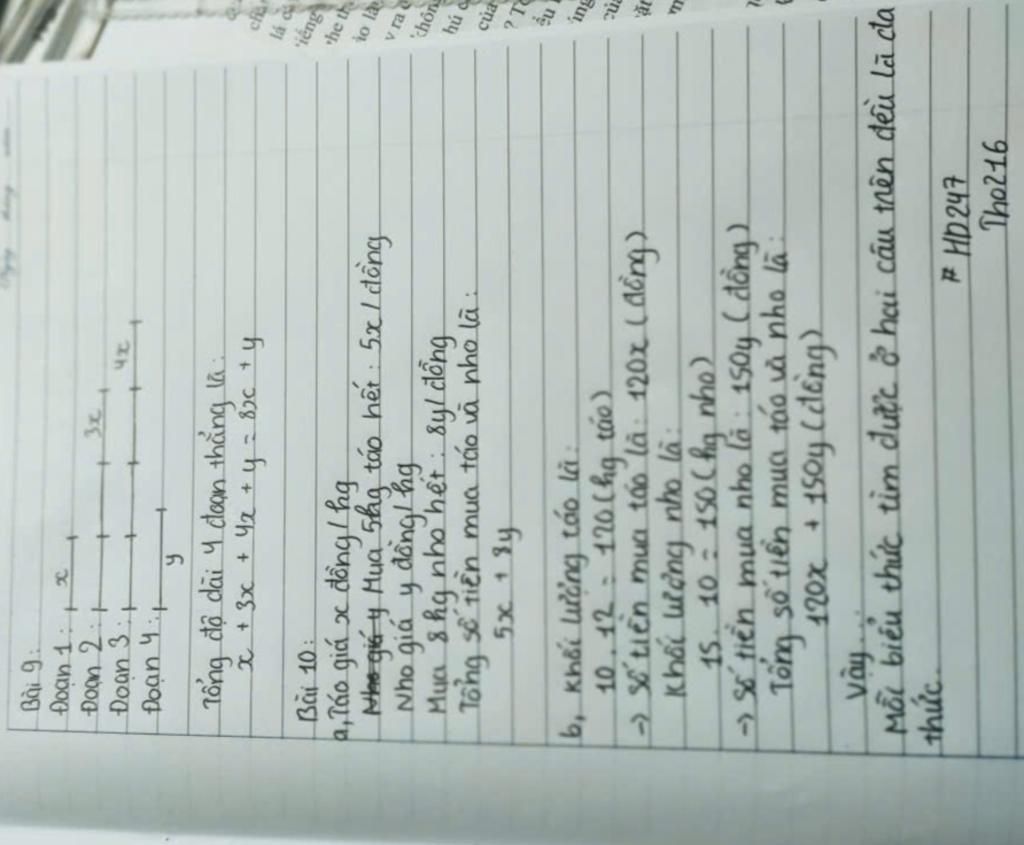 Bài 9:
Đoạn 1: x
Đoạn 2: 3x
Đoạn 3: 4x
Đoạn 4:
y
Tổng độ dài 4 đoạn thẳng là:
x + 3x + 4x + y = 8x + y
Bài 10:
a, Táo giá x đồng/kg
Nho giá y Mua 5kg táo hết: 5x/đồng
Nho giá y đồng/kg
Mua 8kg nho hết: 8y/đồng
Tổng số tiền mua táo và nho là:
5x + 8y
b, Khối lượng táo là:
10.12 = 120(kg táo)
→ Số tiền mua táo là: 120x (đồng)
Khối lượng nho là:
15.10 = 150(kg nho)
→ Số tiền mua nho là: 150y (đồng)
Tổng số tiền mua táo và nho là:
120x + 150y (đồng)
Vậy...
Mỗi biểu thức tìm được ở hai câu trên đều là đa
thức.
HD247
Tho216